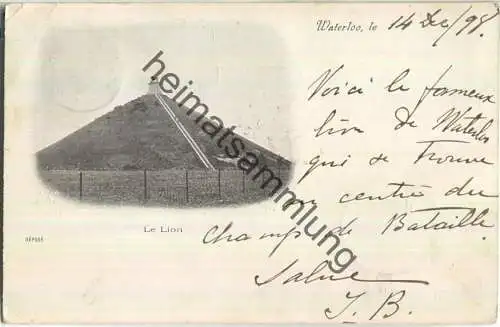 Waterloo, le 14 Dec/98.
Voici le fameux
lion de Waterloo
qui se trouve
au centre du
champs de Bataille.
Salue
J. B.
Le Lion
DÉPOSÉ
heimatsammlung.de